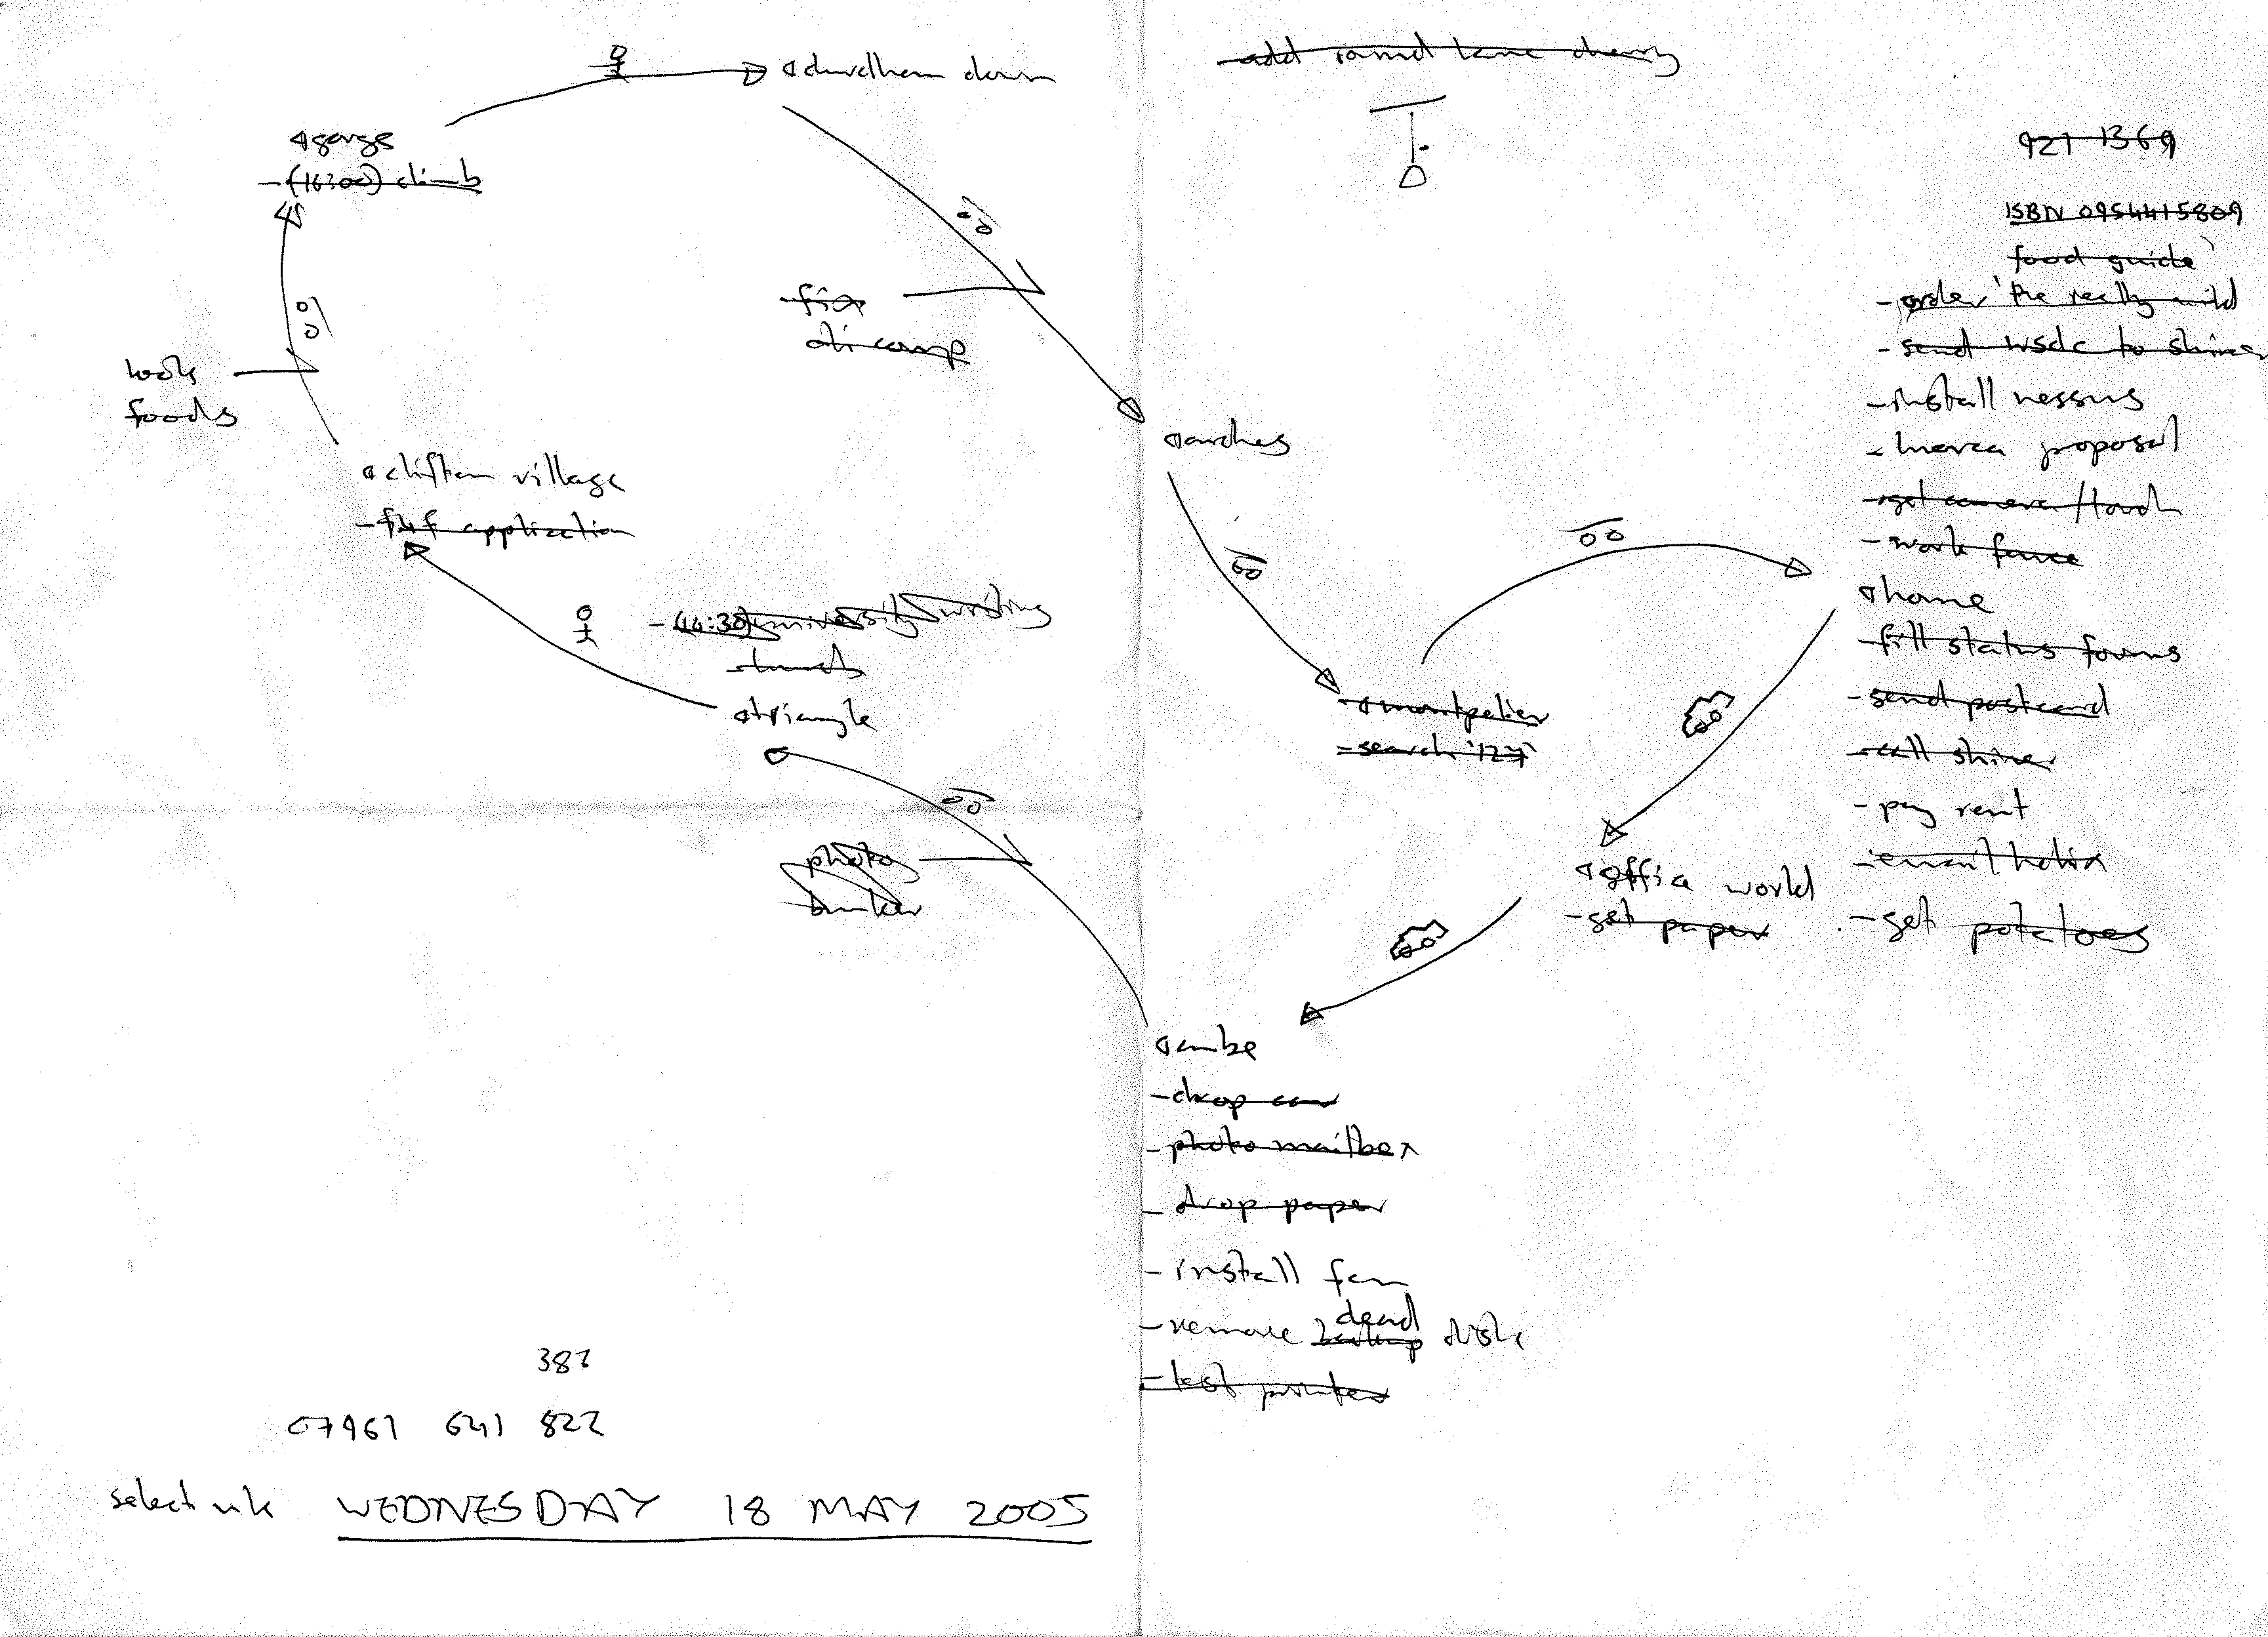 durdham down
add round lane cherry
gorge
-(16:00) climb
921 1369
ISBN 0954415809
food guide'
- order 'the really wild
- send wsdc to shiner
- install nessus
- proposal
- get camera/torch
- work fence
home
- fill status forms
- send postcard
- call shiner
- pay rent
- email helix
- get potatoes
fix
foods
arches
clifton village
- application
- (14:30) university
- lunch
triangle
montpelier
- search '127'
photo
bunker
office world
- get paper
cube
- drop car
- photo mailbox
- drop paper
- install fan
- remove backup dead disk
- test printer
387
07967 641 822
select uk WEDNESDAY 18 MAY 2005